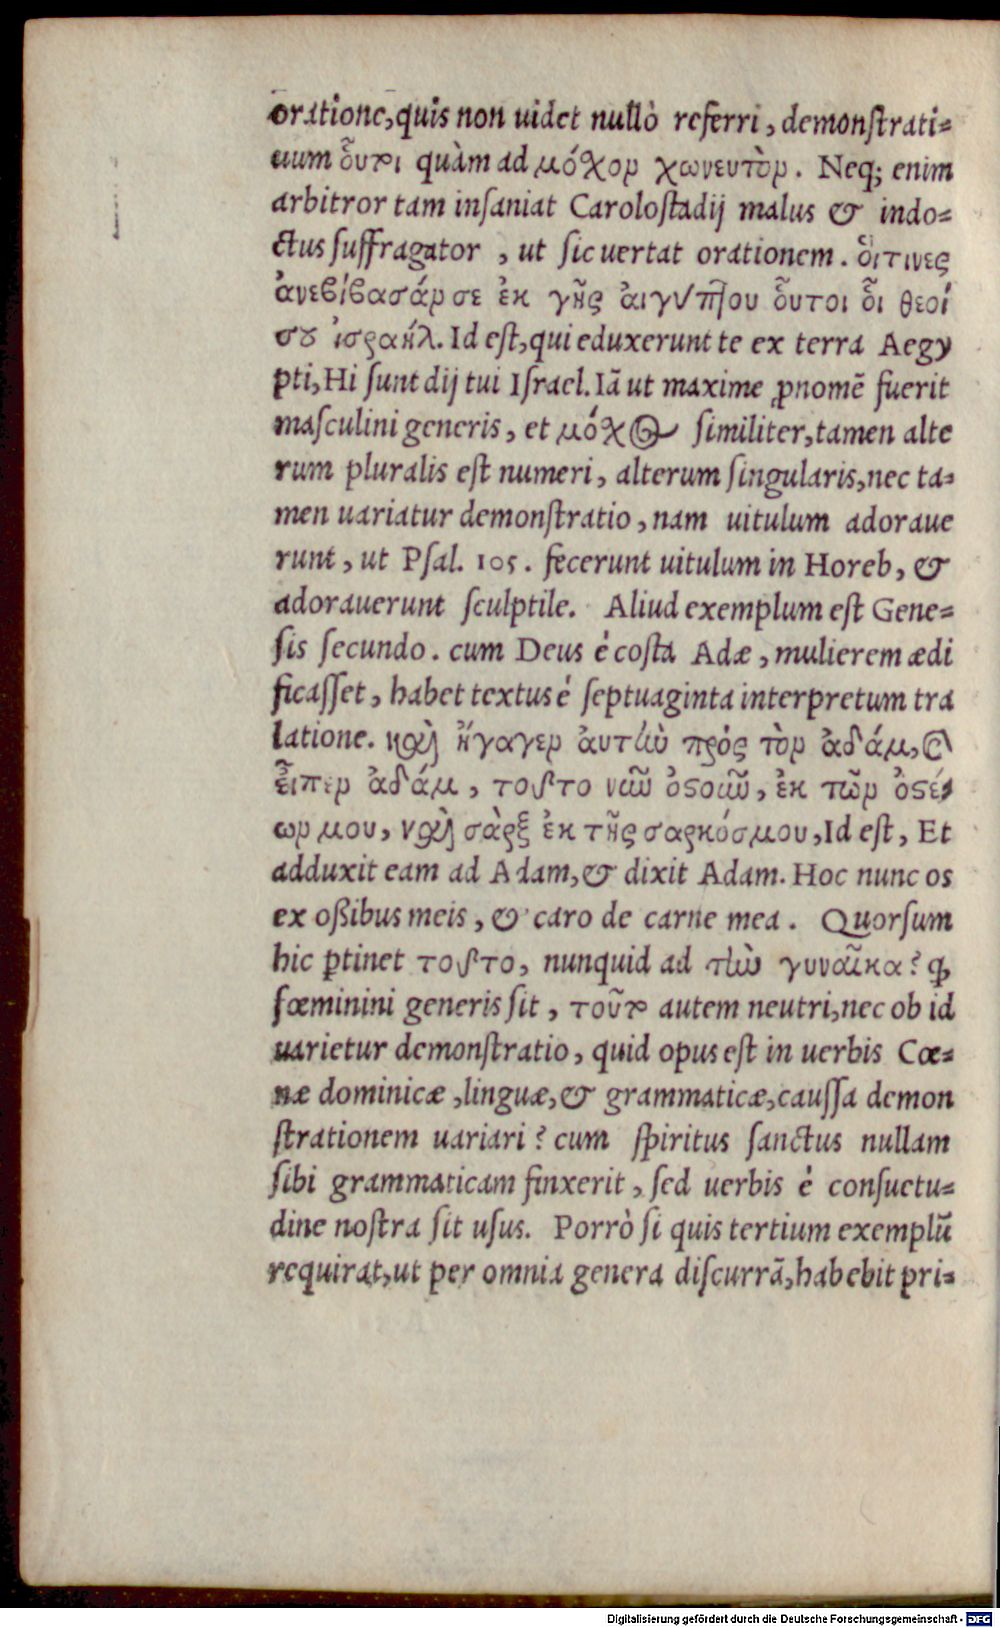 oratione, quis non uidet nullò referri, demonſtrati-
uum οὗτοι quàm ad μόχον χωνευτὸν. Neq; enim
arbitror tam inſaniat Caroloſtadij malus & indo-
ctus ſuffragator , ut ſic uertat orationem. ὅιτινες
ἀνεβίβασάν σε ἐκ γῆς ἀιγύπτου οὗτοι ὁι θεοί
σου ἰσραήλ. Id eſt, qui eduxerunt te ex terra Aegy
pti, Hi ſunt dij tui Iſrael. Iā ut maxime ꝓnomē fuerit
maſculini generis, et μόχος ſimiliter, tamen alte
rum pluralis eſt numeri, alterum ſingularis, nec ta-
men uariatur demonſtratio, nam uitulum adoraue
runt, ut Pſal. 105. fecerunt uitulum in Horeb, &
adorauerunt ſculptile. Aliud exemplum eſt Gene-
ſis ſecundo. cum Deus é coſta Adæ, mulierem ædi
ficaſſet, habet textus é ſeptuaginta interpretum tra
latione. καὶ ἤγαγεν ἀυτὴν πρός τὸν ἀδάμ, καὶ
εἶπεν ἀδάμ, τοῦτο νῦν ὀστοῦν, ἐκ τῶν ὀστέ-
ων μου, καὶ σὰρξ ἐκ τῆς σαρκόσμου, Id eſt, Et
adduxit eam ad Adam, & dixit Adam. Hoc nunc os
ex oßibus meis, & caro de carne mea. Quorſum
hic ꝑtinet τοῦτο, nunquid ad τὴν γυναῖκα? ꝙ
fœminini generis ſit, τοῦτο autem neutri, nec ob id
uarietur demonſtratio, quid opus eſt in uerbis Cœ-
næ dominicæ, linguæ, & grammaticæ, cauſſa demon
ſtrationem uariari? cum ſpiritus ſanctus nullam
ſibi grammaticam finxerit, ſed uerbis é conſuetu-
dine noſtra ſit uſus. Porrò ſi quis tertium exemplū
requirat, ut per omnia genera diſcurrā, habebit pri-
Digitalisierung gefördert durch die Deutsche Forschungsgemeinschaft - DFG